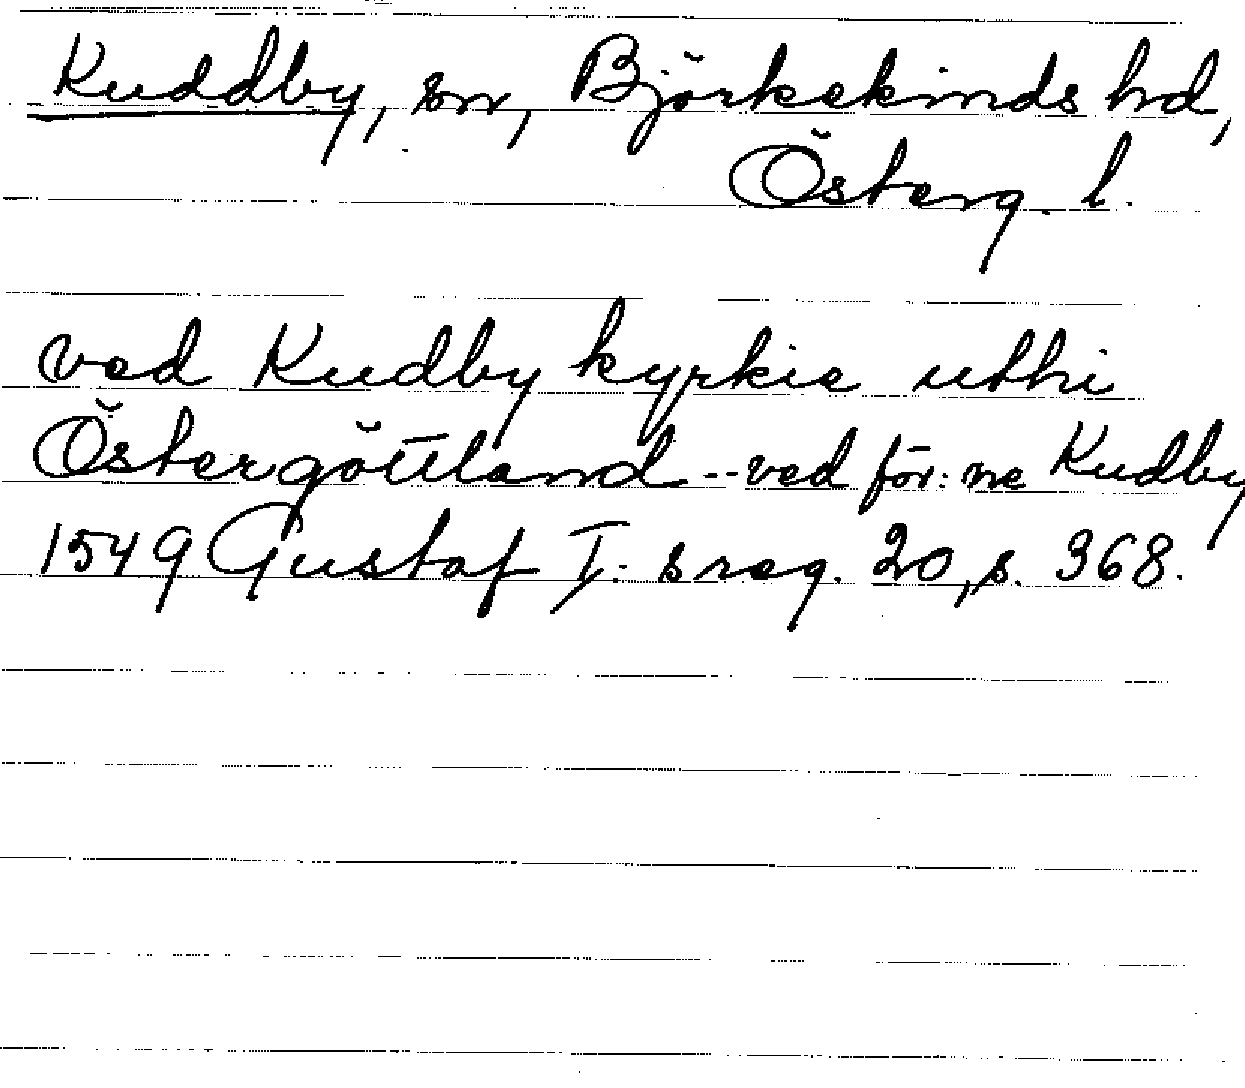 Kuddby, sn, Björkekinds hd,
Österg. l.
ved Kudby kyrkie uthi
Östergöttland -- ved för: ne Kudby
1549 Gustaf I: s reg. 20, s. 368.